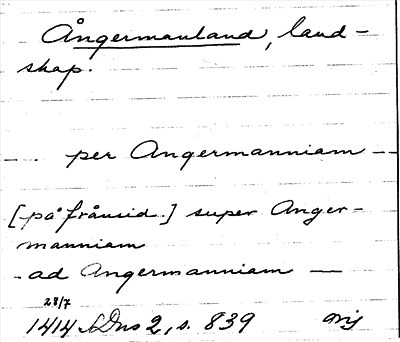 Ångermanland, land-
skap.
- . per Angermanniam --
[på frånsid.] super Anger-
manniam
- ad Angermanniam —
28/7
1414 SDns 2, s. 839